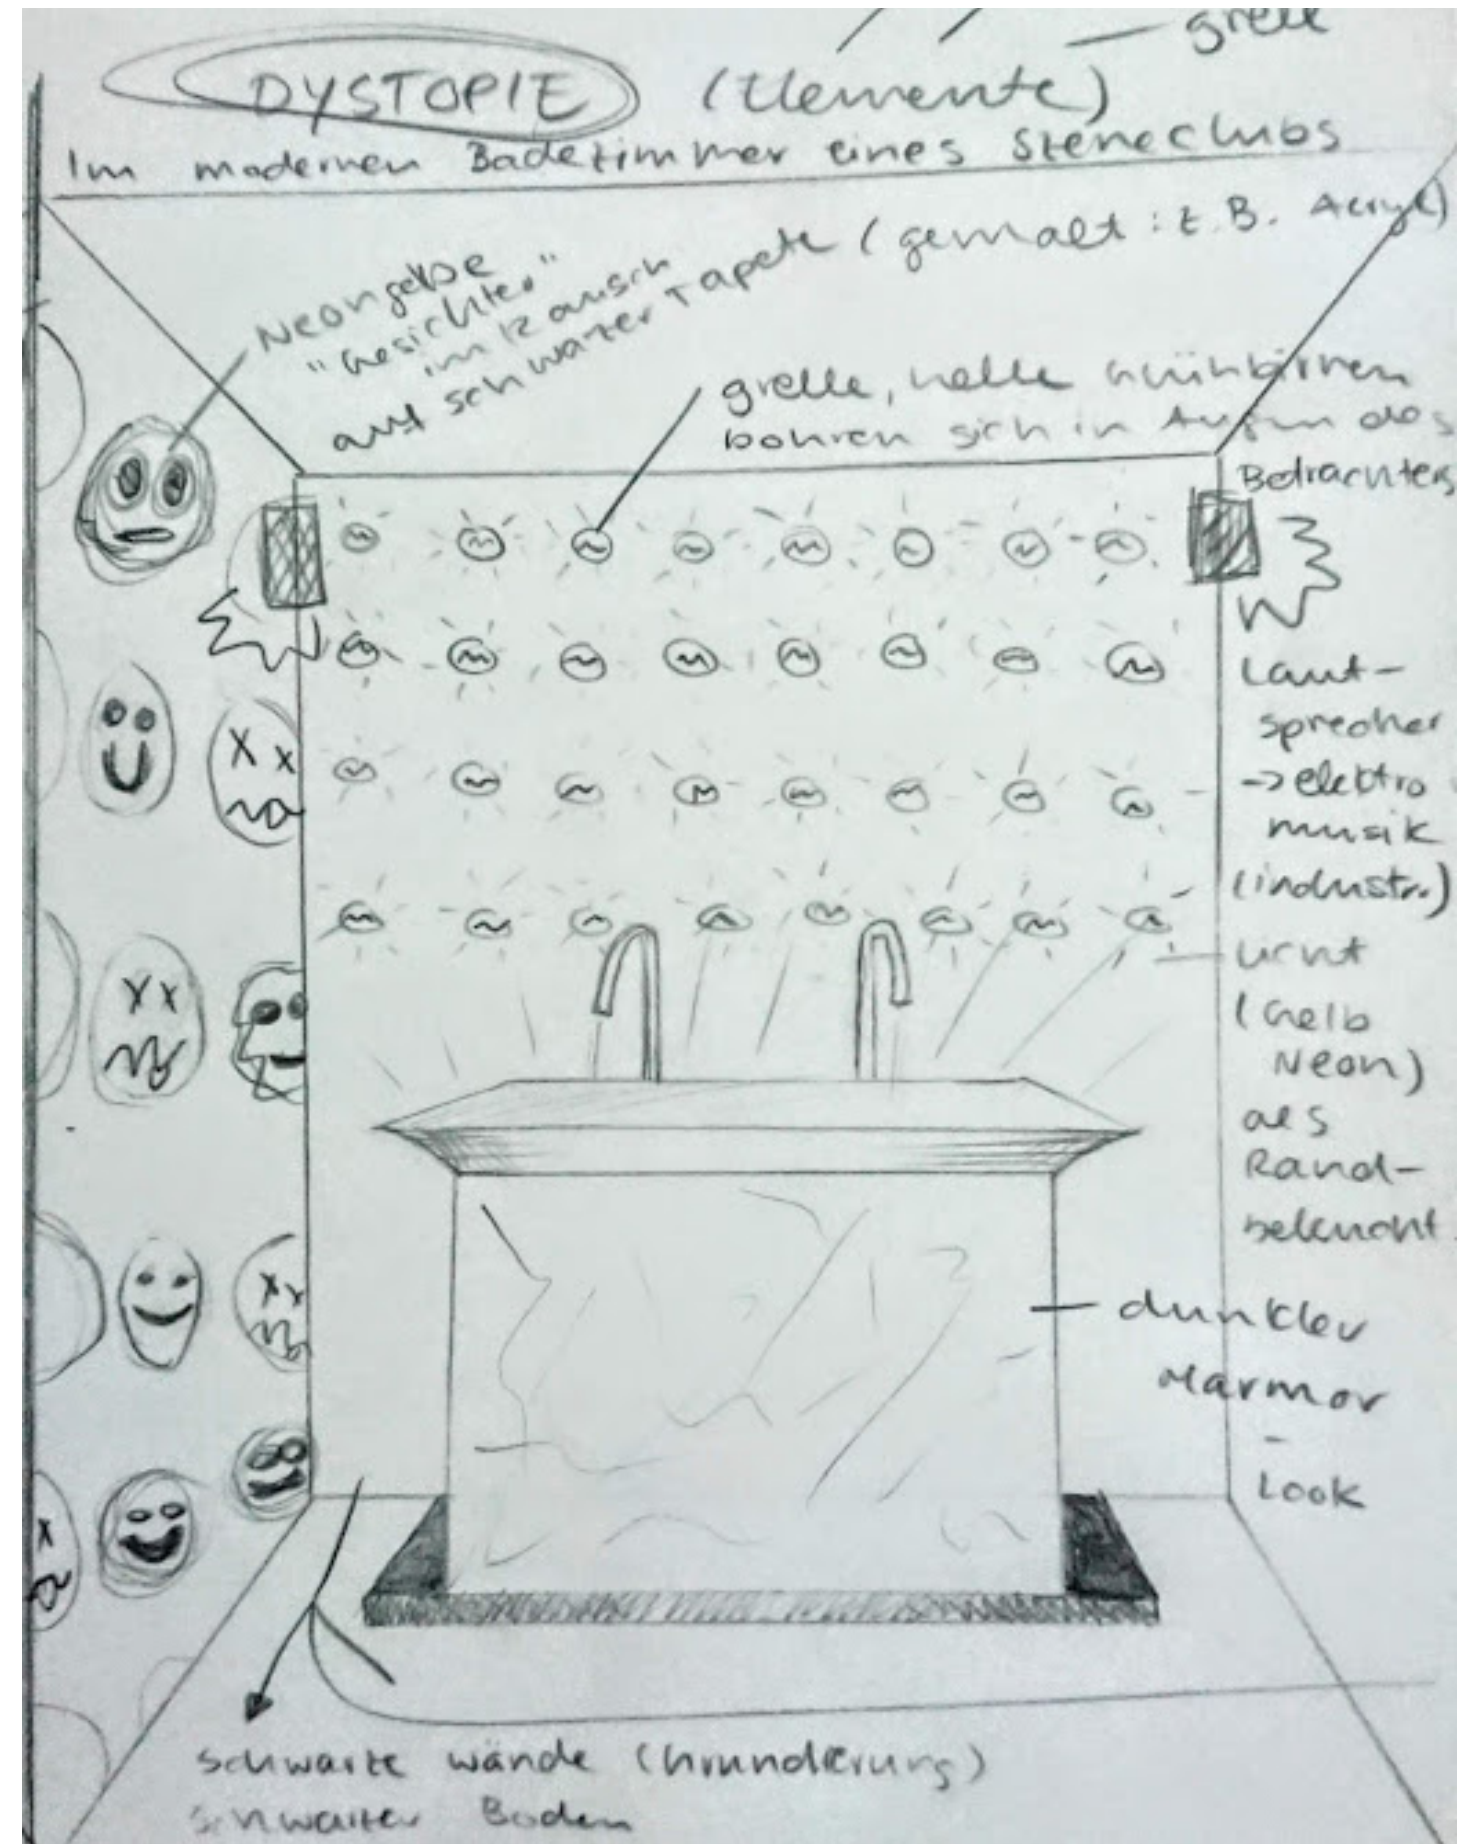 grell
DYSTOPIE (Elemente)
Im modernen Badezimmer eines Szeneclubs
Neongelbe
"Gesichter"
im Rausch
auf schwarzer Tapete (gemalt: z.B. Acryl)
grelle, helle Glühbirnen
bohren sich in Augen des
Betrachters
Laut-
sprecher
-> elektro
musik
(industr.)
Licht
(Gelb
Neon)
als
Rand-
beleucht.
dunkler
Marmor
-
Look
schwarze Wände (Grundierung)
schwarzer Boden